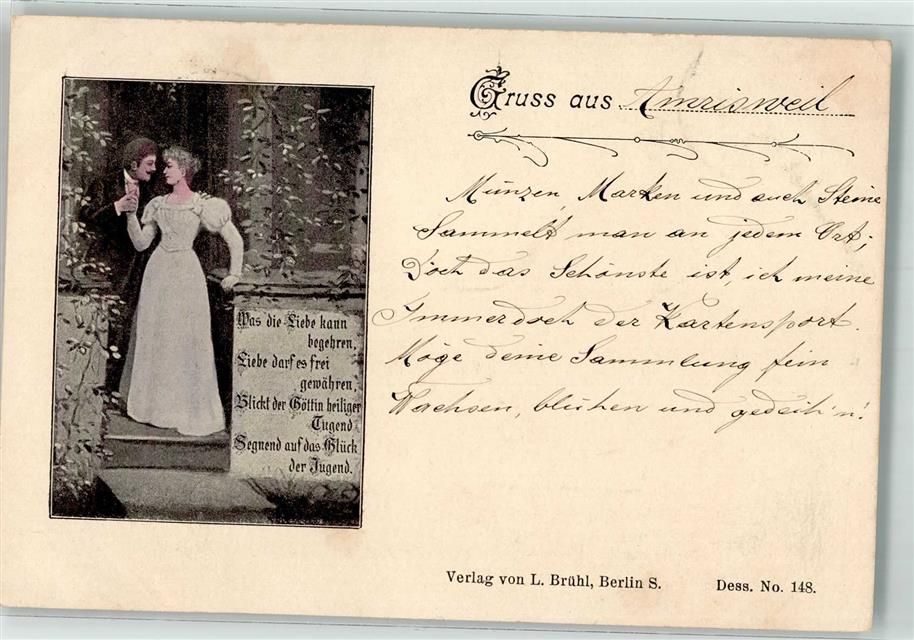 Gruss aus Amrisweil
Münzen, Marken und auch Steine
Sammelt man an jedem Ort;
Doch das Schönste ist, ich meine
Immerdoch der Kartensport.
Möge deine Sammlung fein
Wachsen, blühen und gedeih'n!
Was die Liebe kann
begehren,
Liebe darf es frei
gewähren,
Blickt der Göttin heiliger
Tugend
Segnend auf das Glück
der Jugend.
Verlag von L. Brühl, Berlin S. Dess. No. 148.